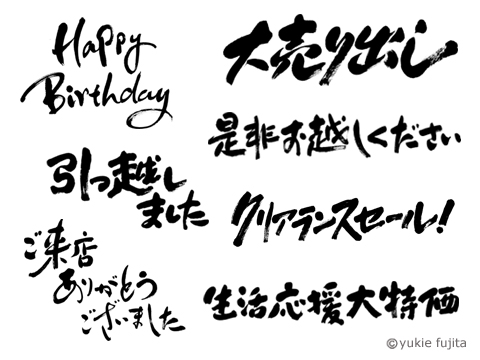 Happy
Birthday
引っ越し
ました
ご来店
ありがとう
ございました
大売り出し
是非お越しください
クリアランスセール!
生活応援大特価
©yukie fujita